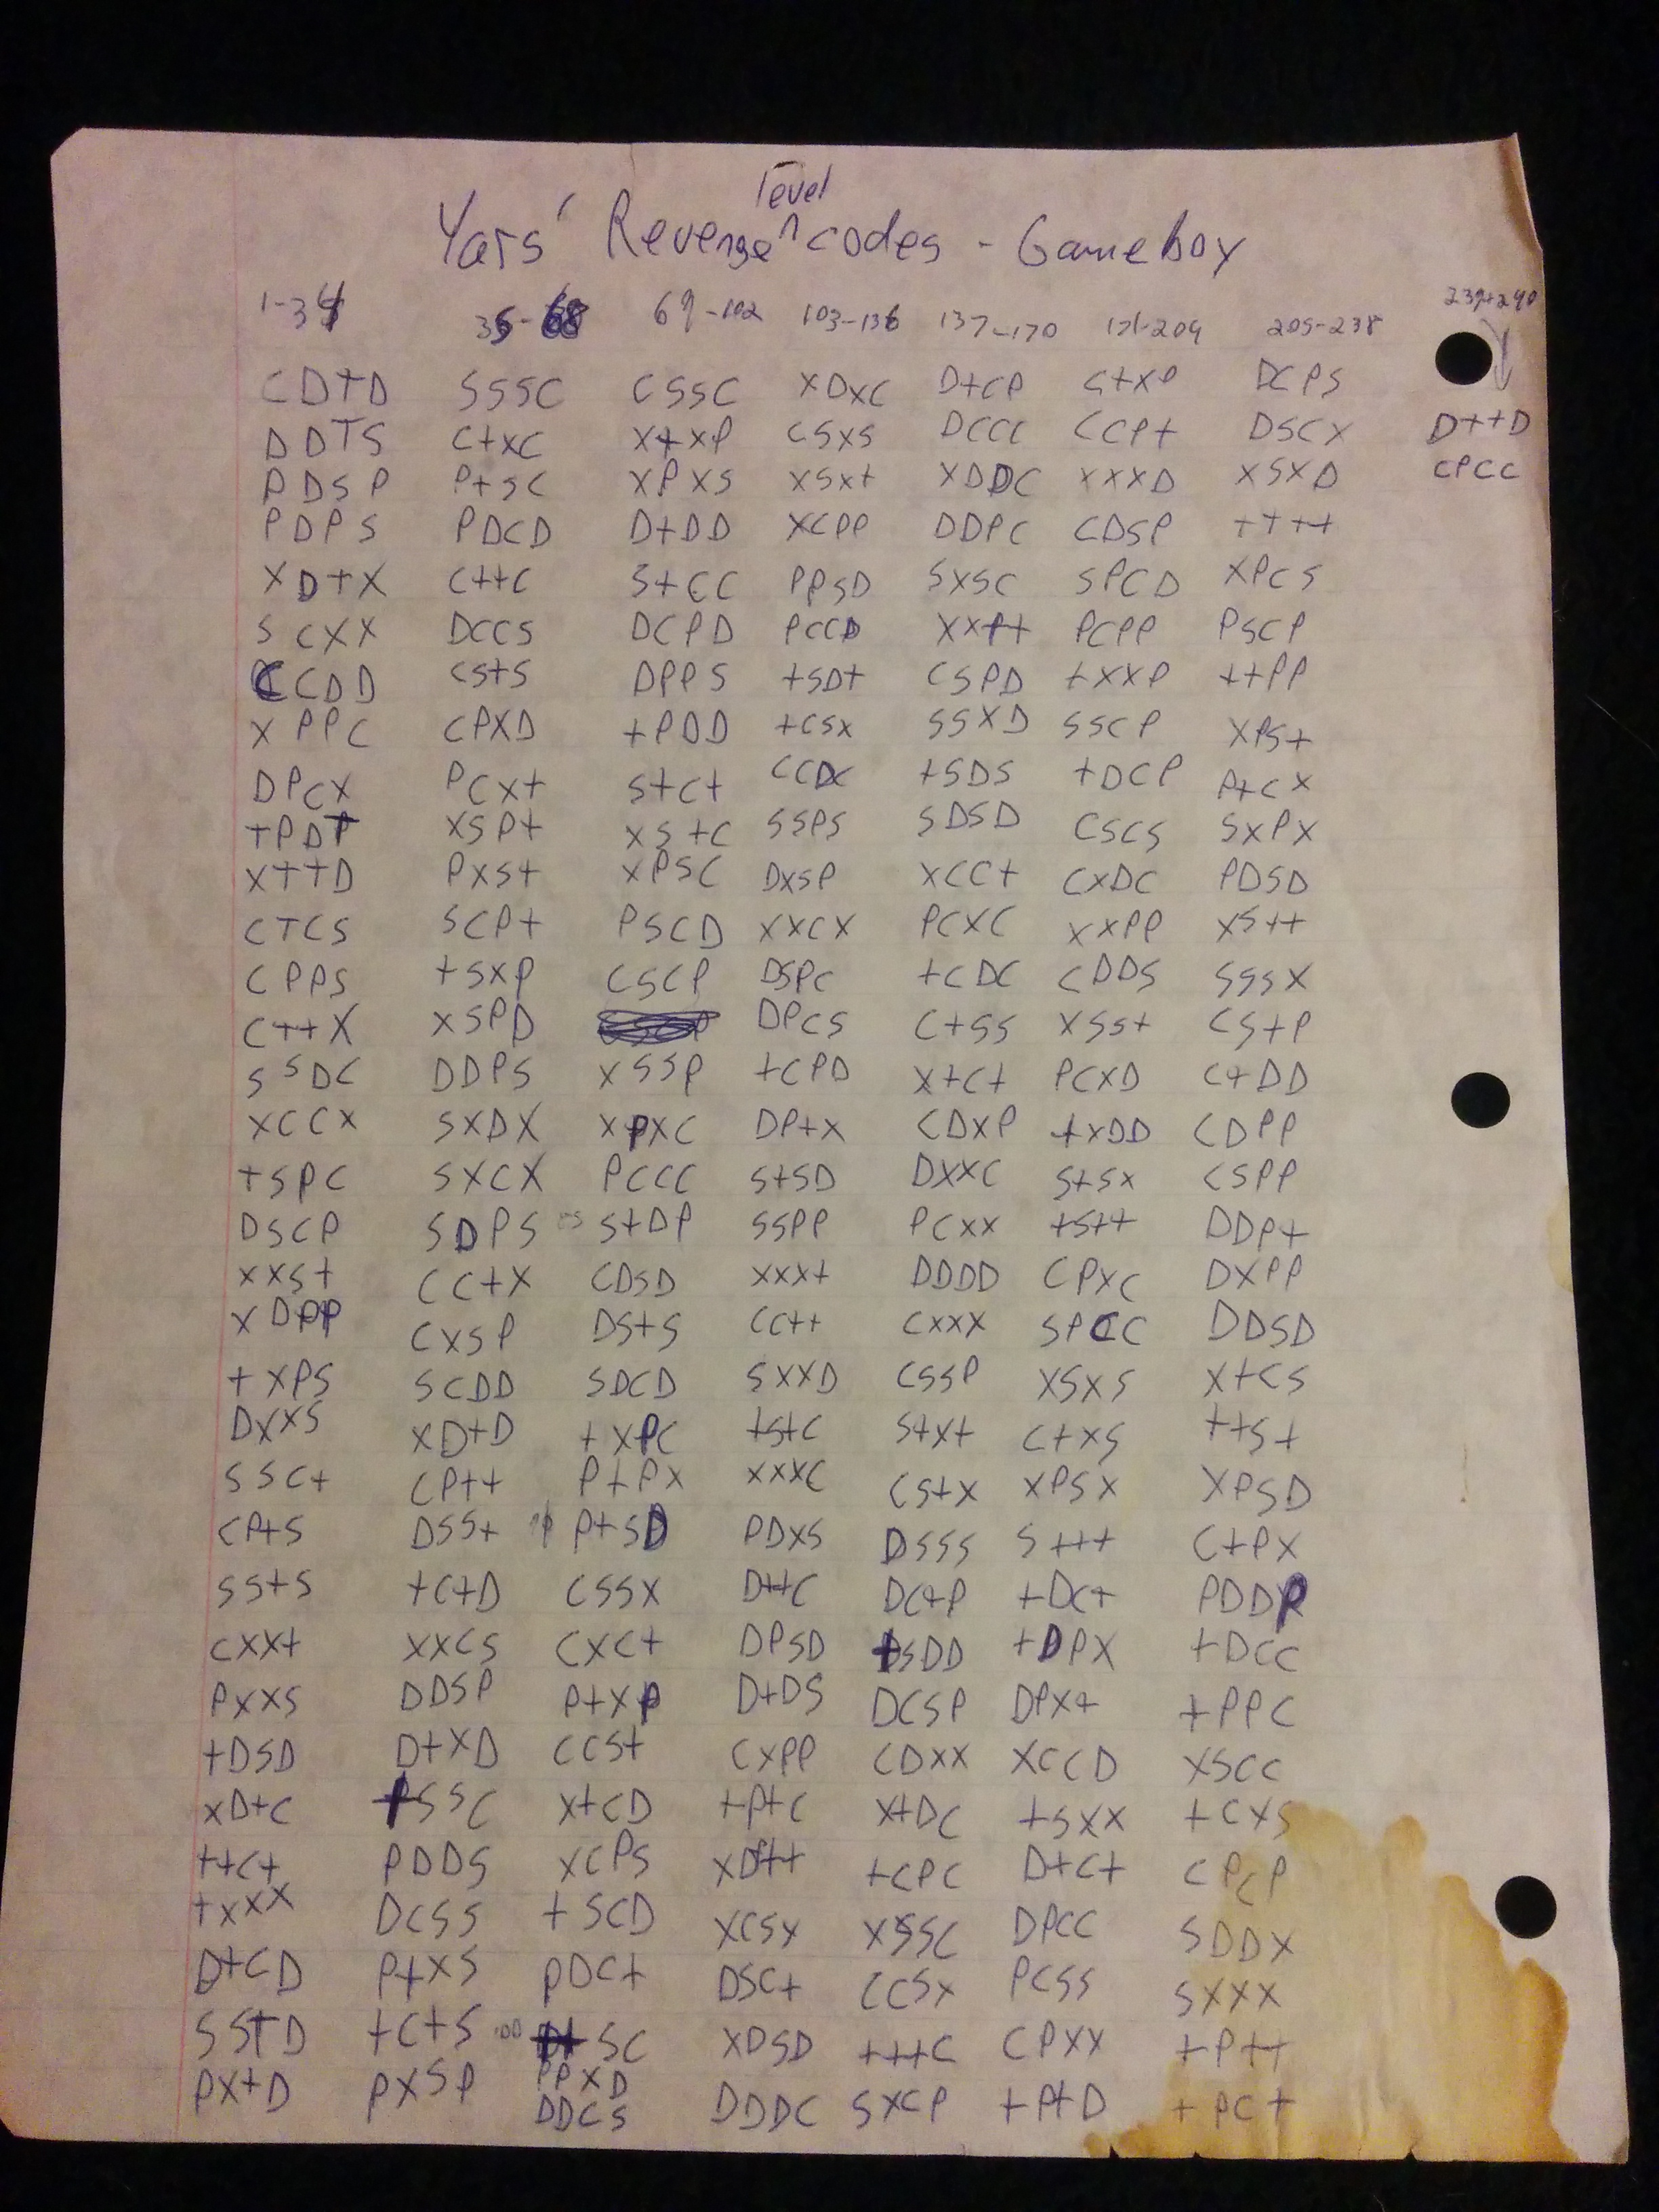 level
Yars' Revenge ^ codes - Gameboy
1-34 35-68 69-102 103-136 137-170 171-204 205-238 239+240
CDTD SSSC CSSC XDXC D+CP C+XP DCPS
DDTS C+XC X+XP CSXS DCCC CCP+ DSCX D++D
PDSP P+SC XPXS XSX+ XDDC XXXD XSXD CPCC
PDPS PDCD D+DD XCPP DDPC CDSP ++++
XD+X C++C S+CC PPSD SXSC SPCD XPCS
SCXX DCCS DCPD PCCD XXP+ PCPP PSCP
CCDD CS+S DPPS +SD+ CSPD +XXP ++PP
XPPC CPXD +PDD +CSX SSXD SSCP XPS+
DPCX PCX+ S+C+ CCDC +SDS +DCP P+CX
TPDT XSP+ XS+C SSPS SDSD CSCS SXPX
XTTD PXS+ XPSC DXSP XCC+ CXDC PDSD
CTCS SCP+ PSCD XXCX PCXC XXPP XS++
CPPS +SXP CSCP DSPC +CDC CDDS SSSX
C++X XSPD DPCS C+SS XSS+ CS+P
SSDC DDPS XSSP +CPD X+C+ PCXD C+DD
XCCX SXDX XPXC DP+X CDXP +XDD CDPP
+SPC SXCX PCCC S+SD DXXC S+SX CSPP
DSCP SDPS 85 S+DP SSPP PCXX +S++ DDP+
XXS+ CC+X CDSD XXX+ DDDD CPXC DXPP
XDPP CXSP DS+S CC++ CXXX SPCC DDSD
+XPS SCDD SDCD SXXD CSSP XSXS X+CS
DXXS XD+D +XPC +S+C S+X+ C+XS ++S+
SSC+ CP++ P+PX XXXC CS+X XPSX XPSD
CP+S DSS+ P+SD PDXS DSSS S+++ C+PX
SS+S +C+D CSSX D++C DC+P +DC+ PDDP
CXX+ XXCS CXC+ DPSD +SDD +DPX +DCC
PXXS DDSP P+XP D+DS DCSP DPX+ +PPC
+DSD D+XD CCS+ CXPP CDXX XCCD XSCC
XD+C +SSC X+CD +P+C X+DC +SXX +CXS
++C+ PDDS XCPS XD++ +CPC D+C+ CPCP
+XXX DCSS +SCD XCSX XSSC DPCC SDDX
D+CD P+XS PDC+ DSC+ CCSX PCSS SXXX
SSTD +C+S 100 D+SC XDSD +++C CPXX +P++
PPXD
PX+D PXSP DDCS DDDC SXCP +P+D +PC+